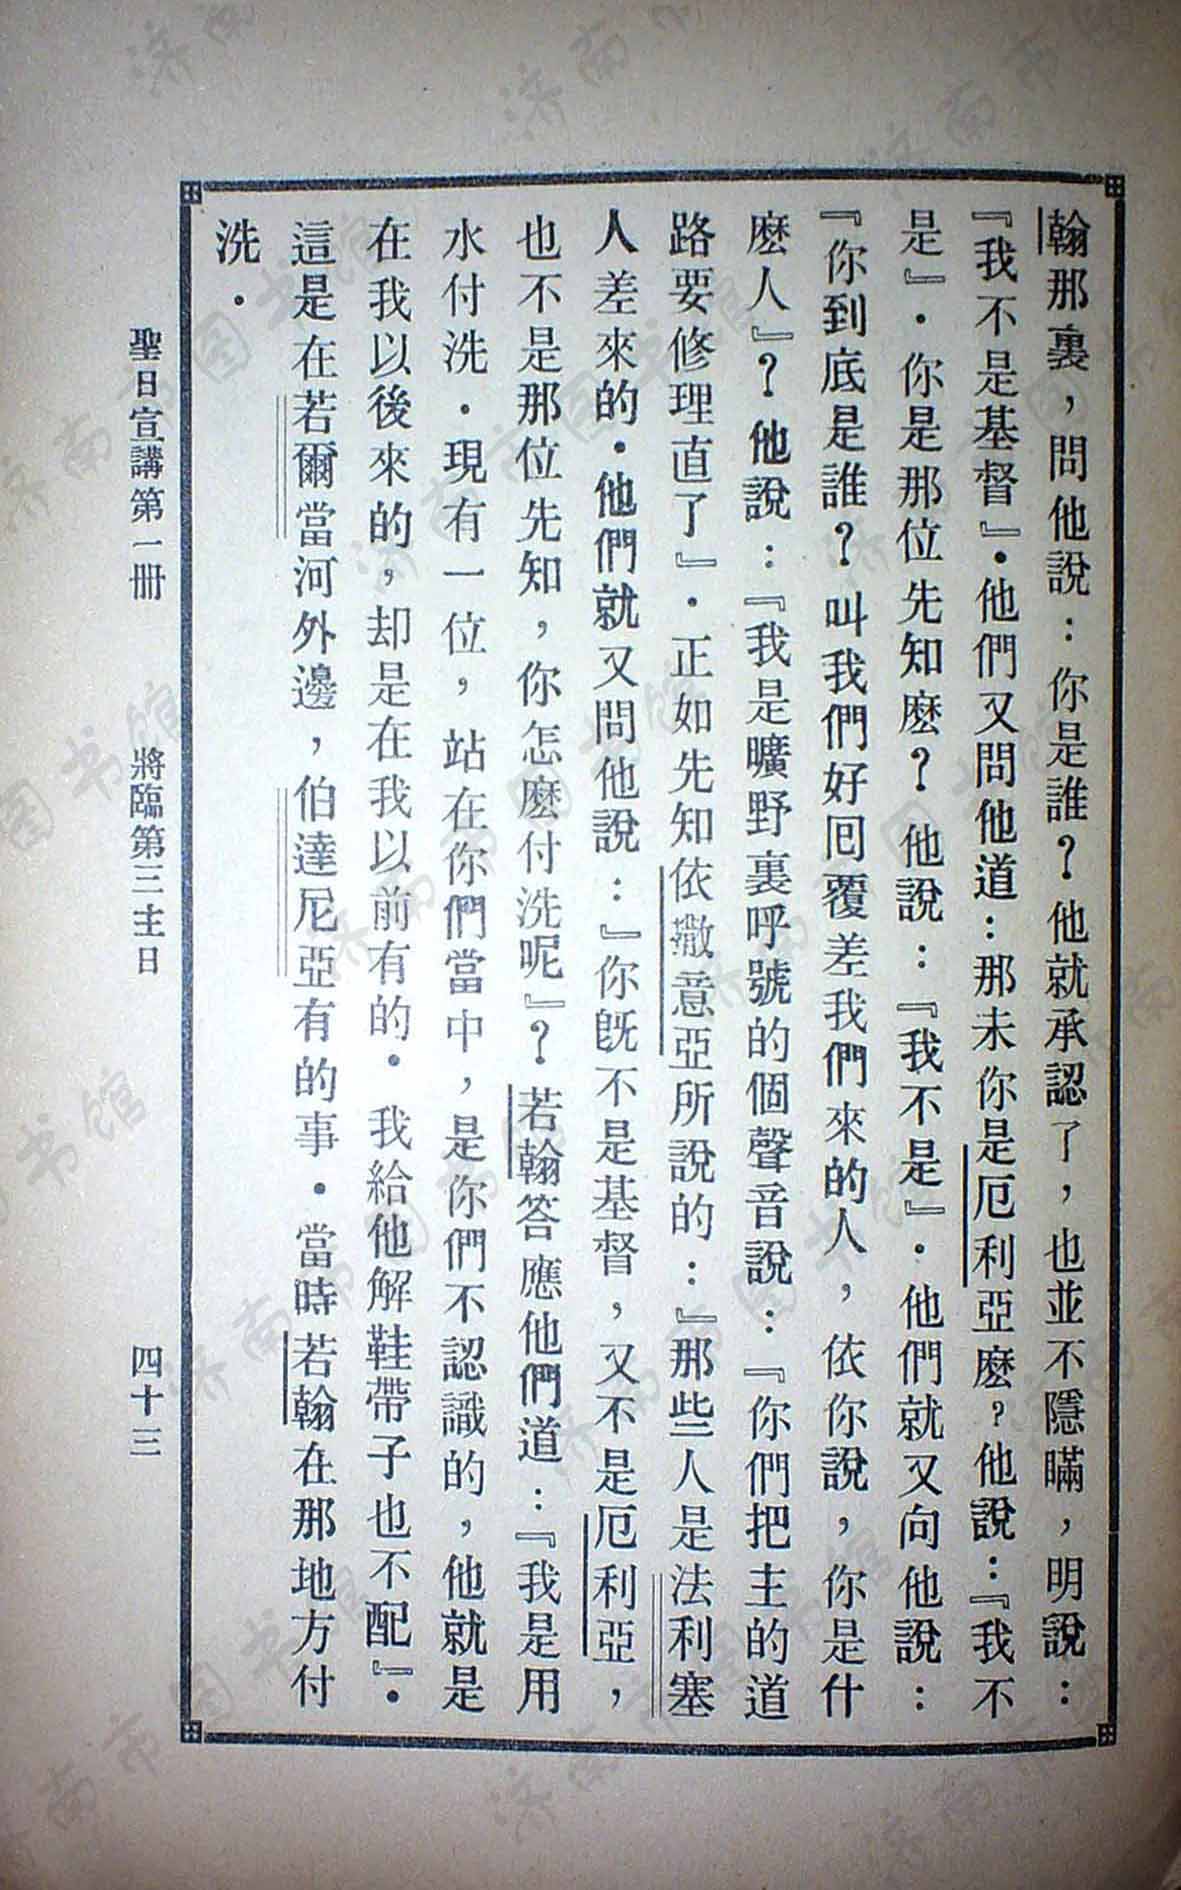 翰那裏，問他說：你是誰？他就承認了，也並不隱瞞，明說：
『我不是基督』．他們又問他道：那末你是厄利亞麽？他說：『我不
是』．你是那位先知麽？他說：『我不是』．他們就又向他說：
『你到底是誰？叫我們好回覆差我們來的人，依你說，你是什
麽人』？他說：『我是曠野裏呼號的個聲音說：『你們把主的道
路要修理直了』．正如先知依撒意亞所說的：』那些人是法利塞
人差來的．他們就又問他說：』你旣不是基督，又不是厄利亞，
也不是那位先知，你怎麽付洗呢』？若翰答應他們道：『我是用
水付洗．現有一位，站在你們當中，是你們不認識的，他就是
在我以後來的，却是在我以前有的．我給他解鞋帶子也不配』．
這是在若爾當河外邊，伯達尼亞有的事．當時若翰在那地方付
洗．
聖日宣講第一冊 將臨第三主日 四十三
济南市图书馆